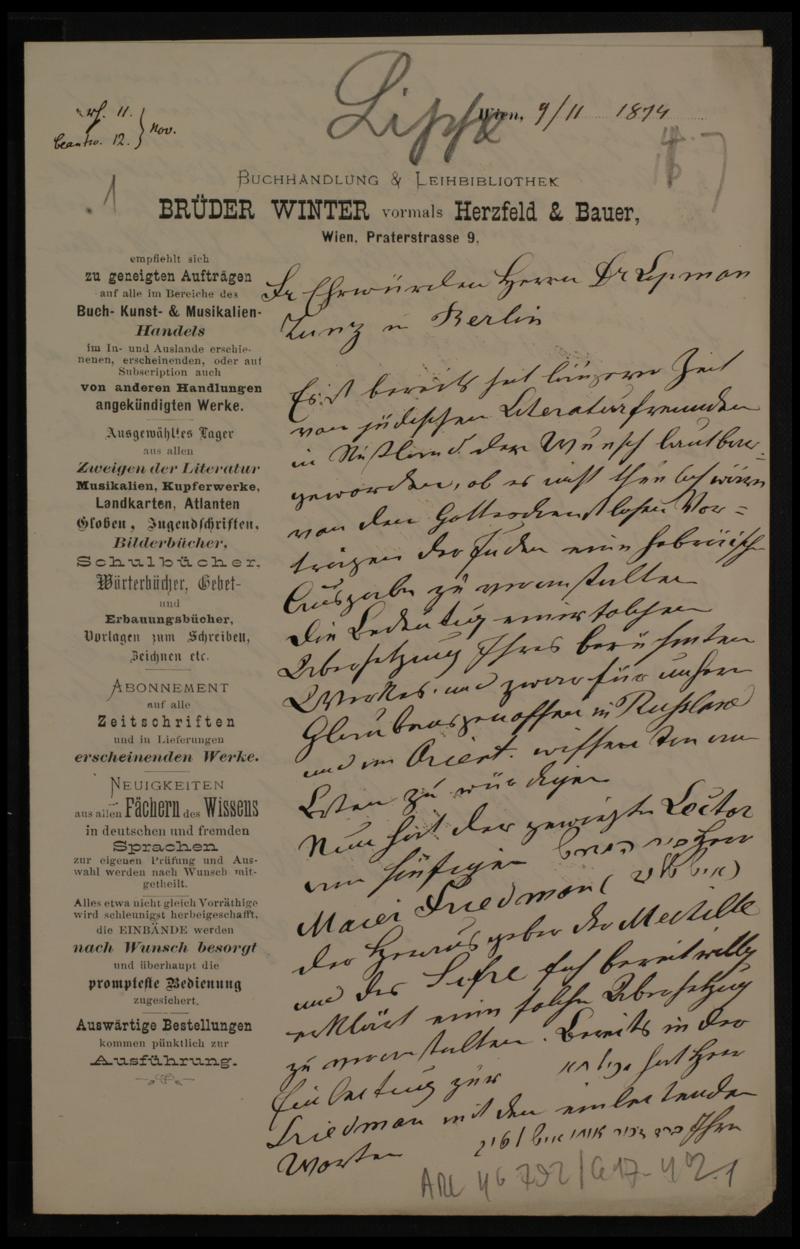 Lippe
Wien, 9/11 1874
erh. 11.
beantw. 12. } Nov.
1
BUCHHANDLUNG & LEIHBIBLIOTHEK
BRÜDER WINTER vormals Herzfeld & Bauer,
Wien, Praterstrasse 9,
empfiehlt sich
zu geneigten Aufträgen
auf alle im Bereiche des
Buch- Kunst- & Musikalien-
Handels
im In- und Auslande erschie-
nenen, erscheinenden, oder auf
Subscription auch
von anderen Handlungen
angekündigten Werke.
Ausgewähltes Lager
aus allen
Zweigen der Literatur
Musikalien, Kupferwerke,
Landkarten, Atlanten
Globen, Jugendschriften,
Bilderbücher,
Schulbücher,
Wörterbücher, Gebet-
und
Erbauungsbücher,
Vorlagen zum Schreiben,
Zeichnen etc.
ABONNEMENT
auf alle
Zeitschriften
und in Lieferungen
erscheinenden Werke.
NEUIGKEITEN
aus allen Fächern des Wissens
in deutschen und fremden
Sprachen
zur eigenen Prüfung und Aus-
wahl werden nach Wunsch mit-
getheilt.
Alles etwa nicht gleich Vorräthige
wird schleunigst herbeigeschafft,
die EINBÄNDE werden
nach Wunsch besorgt
und überhaupt die
prompteste Bedienung
zugesichert.
Auswärtige Bestellungen
kommen pünktlich zur
Ausführung.
Sr Ehrwürden Herrn Dr Lipman
Zunz in Berlin
Es ist bereits seit längerer Zeit
von jüdischen Literaturfreunden
in Rußland der Wunsch lautbar
geworden, ob es nicht thunlich wäre
von den Gottesdienstlichen Vor=
trägen der Juden eine hebräische
Ausgabe zu veranstalten
Die Bedeutung einer solchen
Übersetzung Ihres berühmten
Werkes, und zwar für unsere
Glaubensgenossen in Russland
und im Orient. wissen Sie am
Besten zu würdigen
Nun hat der gewiegte Lector
am hiesigen בית המדרש Herr
Maier Friedman (איש שלום)
der Herausgeber der Mechilta
und des Sifre sich bereitwillig
erklärt eine solche Übersetzung
zu veranstalten. Bereits in der
Einleitung zur hat Herr
Friedman mit den einleitenden
Worten Ihre
ARC 4° 792/G17-42.1